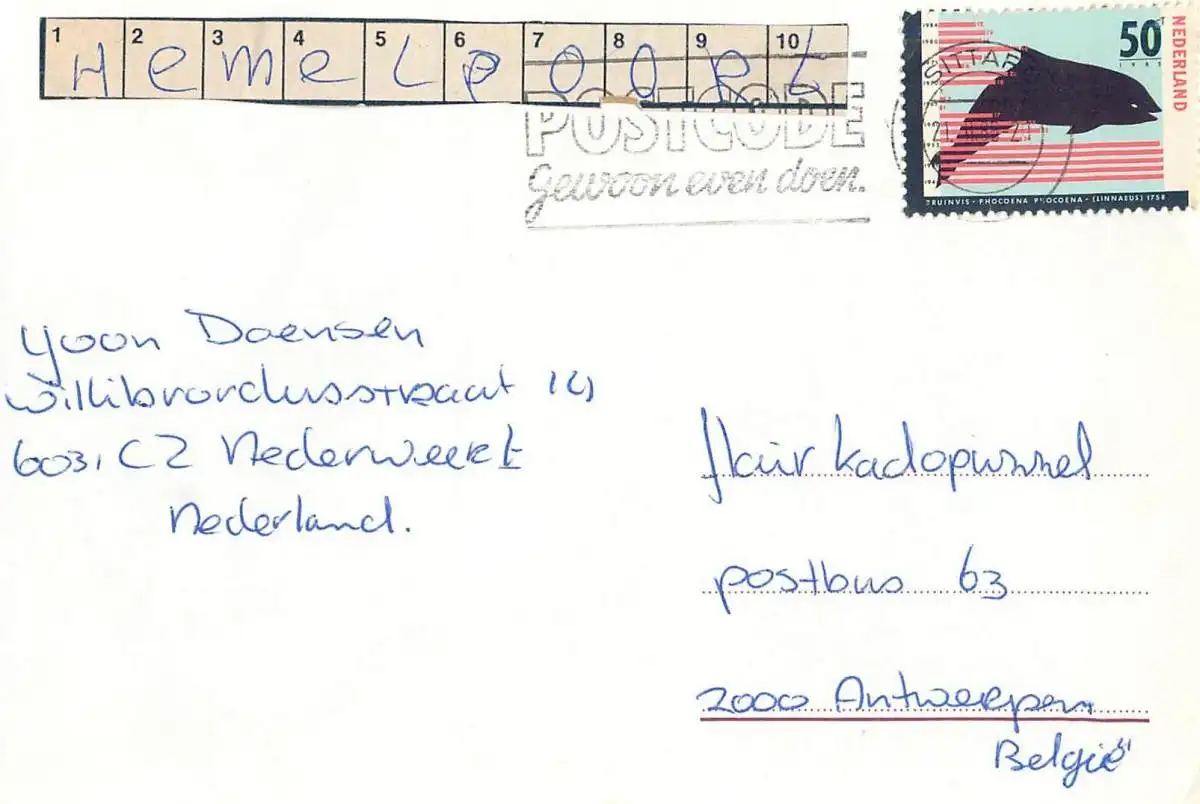 1 2 3 4 5 6 7 8 9 10
HemeLpooRt
POSTCODE
gewoon even doen.
50 ct
1985
NEDERLAND
SITTARD
BRUINVIS - PHOCOENA PHOCOENA - (LINNAEUS) 1758
Yvon Daensen
Willibrordusstraat 14
6031 CZ Nederweert
Nederland.
flair kadopuzzel
postbus 63
2000 Antwerpen
België